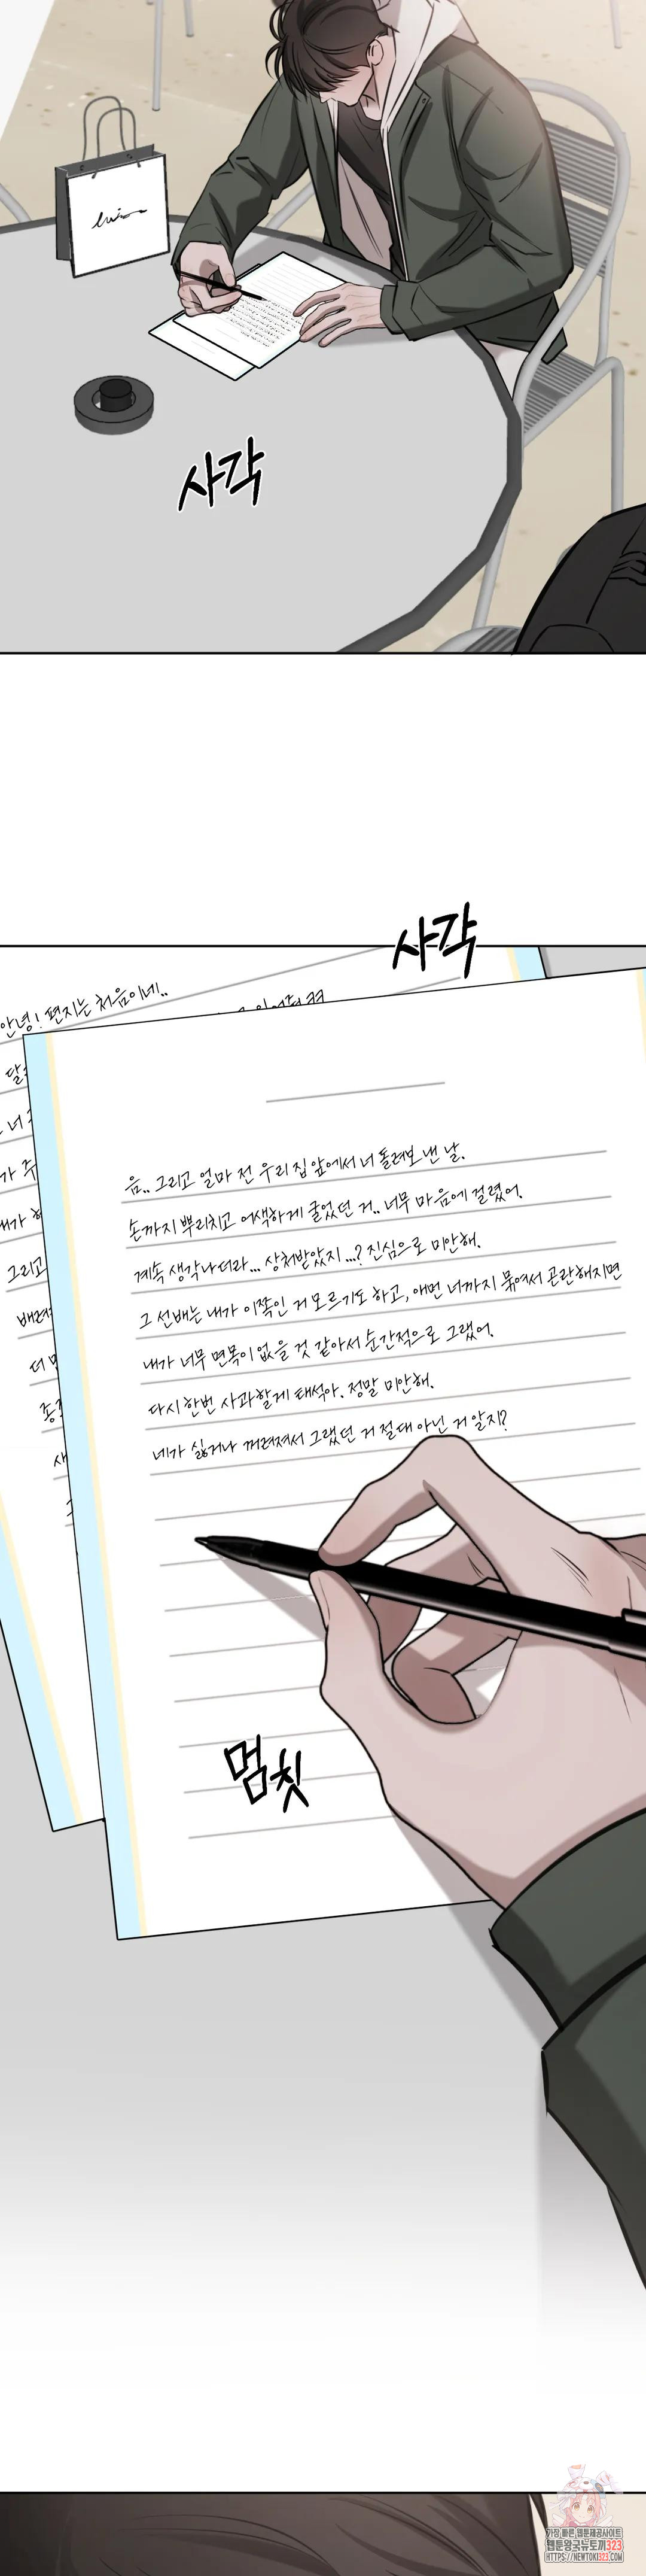 사각
사각
안녕! 편지는 처음이네..
달
너
가 주
내가 하
그리고
배려
더 많
종
사
음.. 그리고 얼마 전 우리 집 앞에서 너 돌려보낸 날.
손까지 뿌리치고 어색하게 굴었던 거.. 너무 마음에 걸렸어.
계속 생각나더라... 상처받았지...? 진심으로 미안해.
그 선배는 내가 이쪽인 거 모르기도 하고, 애먼 너까지 묶여서 곤란해지면
내가 너무 면목이 없을 것 같아서 순간적으로 그랬어.
다시 한번 사과할게 태석아. 정말 미안해.
네가 싫거나 꺼려져서 그랬던 거 절대 아닌 거 알지?
멈칫
가장 빠른 웹툰제공사이트
웹툰왕국뉴토끼323
HTTPS://NEWTOKI323.COM